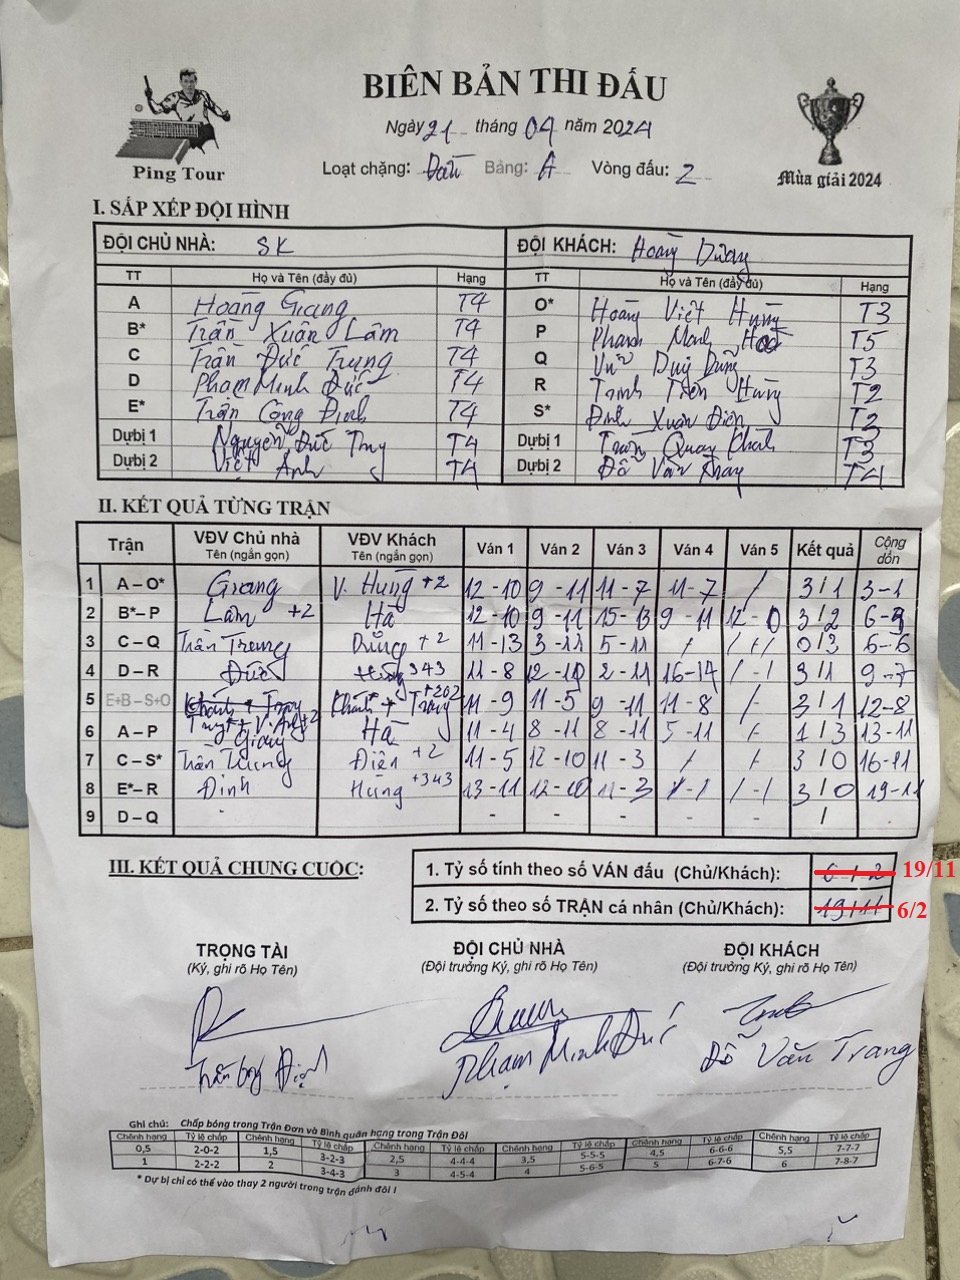 BIÊN BẢN THI ĐẤU
Ngày 21 tháng 04 năm 2024
Ping Tour
Loạt chặng: Đấu Bảng: A Vòng đấu: 2
Mùa giải 2024
I. SẮP XẾP ĐỘI HÌNH
ĐỘI CHỦ NHÀ: SK ĐỘI KHÁCH: Hoàng Dương
TT Họ và Tên (đầy đủ) Hạng TT Họ và Tên (đầy đủ) Hạng
A Hoàng Giang T4 O* Hoàng Việt Hùng T3
B* Trần Xuân Lâm T4 P Phạm Minh Hà T5
C Trần Đức Trung T4 Q Vũ Duy Dũng T3
D Phạm Minh Đức T4 R Trịnh Tiến Hùng T2
E* Trần Công Định T4 S* Đinh Xuân Điện T3
Dựbị 1 Nguyễn Đức Truy T4 Dựbị 1 Trần Quang Khánh T3
Dựbị 2 Việt Anh T4 Dựbị 2 Đỗ Văn Trang T4
II. KẾT QUẢ TỪNG TRẬN
Trận VĐV Chủ nhà Tên (ngắn gọn) VĐV Khách Tên (ngắn gọn) Ván 1 Ván 2 Ván 3 Ván 4 Ván 5 Kết quả Cộng dồn
1 A – O* Giang V. Hùng +2 12 - 10 9 - 11 11 - 7 11 - 7 / 3 / 1 3 - 1
2 B*– P Lâm +2 Hà 12 - 10 9 - 11 15 - 13 9 - 11 12 - 10 3 / 2 6 - 3
3 C – Q Trần Trung Dũng +2 11 - 13 3 - 11 5 - 11 / / 0 / 3 6 - 6
4 D – R Đức Hùng 343 11 - 8 12 - 10 2 - 11 16 - 14 / - / 3 / 1 9 - 7
5 E+B – S+O Truy + V. Anh +2 Khánh + Trang +202 11 - 9 11 - 5 9 - 11 11 - 8 / - 3 / 1 12 - 8
6 A – P Giang Hà 11 - 4 8 - 11 8 - 11 5 - 11 / 1 / 3 13 - 11
7 C – S* Trần Trung Điện +2 11 - 5 12 - 10 11 - 3 / / 3 / 0 16 - 11
8 E*– R Định Hùng +343 13 - 11 12 - 10 11 - 3 / - / / - / 3 / 0 19 - 11
9 D – Q - - - - - - /
III. KẾT QUẢ CHUNG CUỘC:
1. Tỷ số tính theo số VÁN đấu (Chủ/Khách): 6 / 2 19/11
2. Tỷ số theo số TRẬN cá nhân (Chủ/Khách): 19/11 6/2
TRỌNG TÀI ĐỘI CHỦ NHÀ ĐỘI KHÁCH
(Ký, ghi rõ Họ Tên) (Đội trưởng Ký, ghi rõ Họ Tên) (Đội trưởng Ký, ghi rõ Họ Tên)
Trần Công Định Phạm Minh Đức Đỗ Văn Trang
Ghi chú: Chấp bóng trong Trận Đơn và Bình quân hạng trong Trận Đôi
Chênh hạng Tỷ lệ chấp Chênh hạng Tỷ lệ chấp Chênh hạng Tỷ lệ chấp Chênh hạng Tỷ lệ chấp Chênh hạng Tỷ lệ chấp Chênh hạng Tỷ lệ chấp
0,5 2-0-2 1,5 3-2-3 2,5 4-4-4 3,5 5-5-5 4,5 6-6-6 5,5 7-7-7
1 2-2-2 2 3-4-3 3 4-5-4 4 5-6-5 5 6-7-6 6 7-8-7
* Dự bị chỉ có thể vào thay 2 người trong trận đánh đôi !